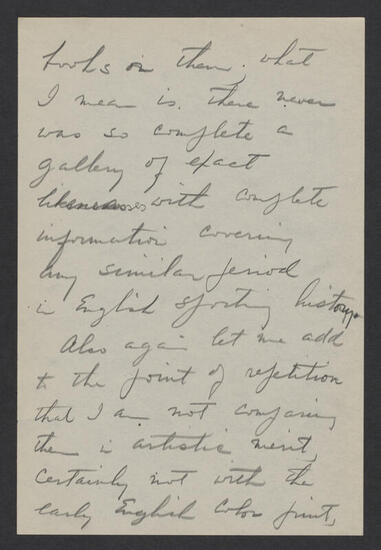 books on them, what
I mean is. there never
was so complete a
gallery of exact
likenesses with complete
information covering
any similar period
in English sporting history.
Also again let me add
to the point of repetition
that I am not comparing
them in artistic merit,
certainly not with the
early English color print,